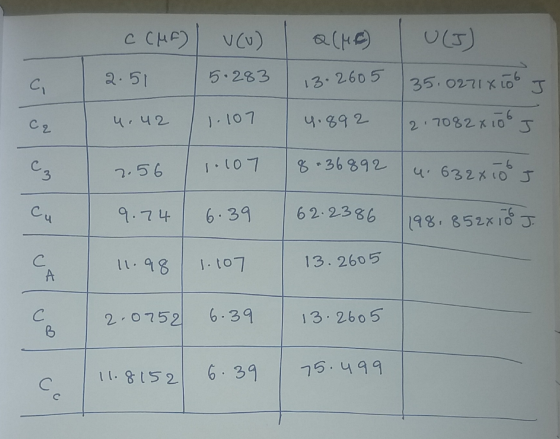 C (μF) V(V) Q(μC) U(J)
C1 2.51 5.283 13.2605 35.0271×10^-6 J
C2 4.42 1.107 4.892 2.7082×10^-6 J
C3 7.56 1.107 8.36892 4.632×10^-6 J
C4 9.74 6.39 62.2386 198.852×10^-6 J
CA 11.98 1.107 13.2605
CB 2.0752 6.39 13.2605
Cc 11.8152 6.39 75.499